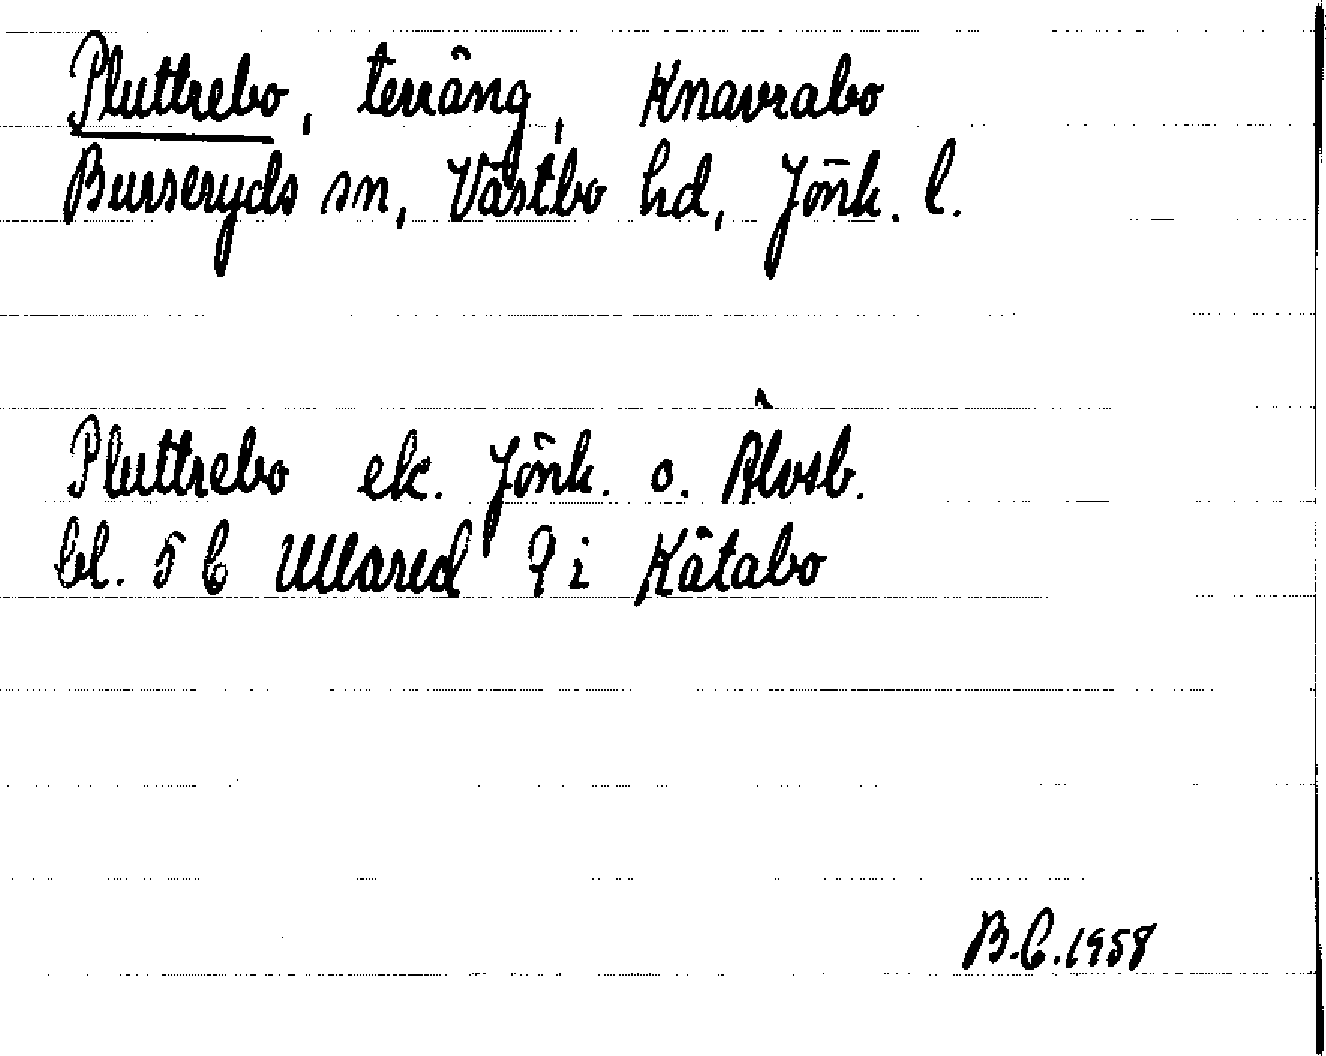 Pluttrebo, terräng, Knavrabo
Burseryds sn, Västbo hd, Jönk. l.
Pluttrebo ek. Jönk. o. Älvsb.
bl. 5 C Ullared 9 i Kätabo
B.C. 1958